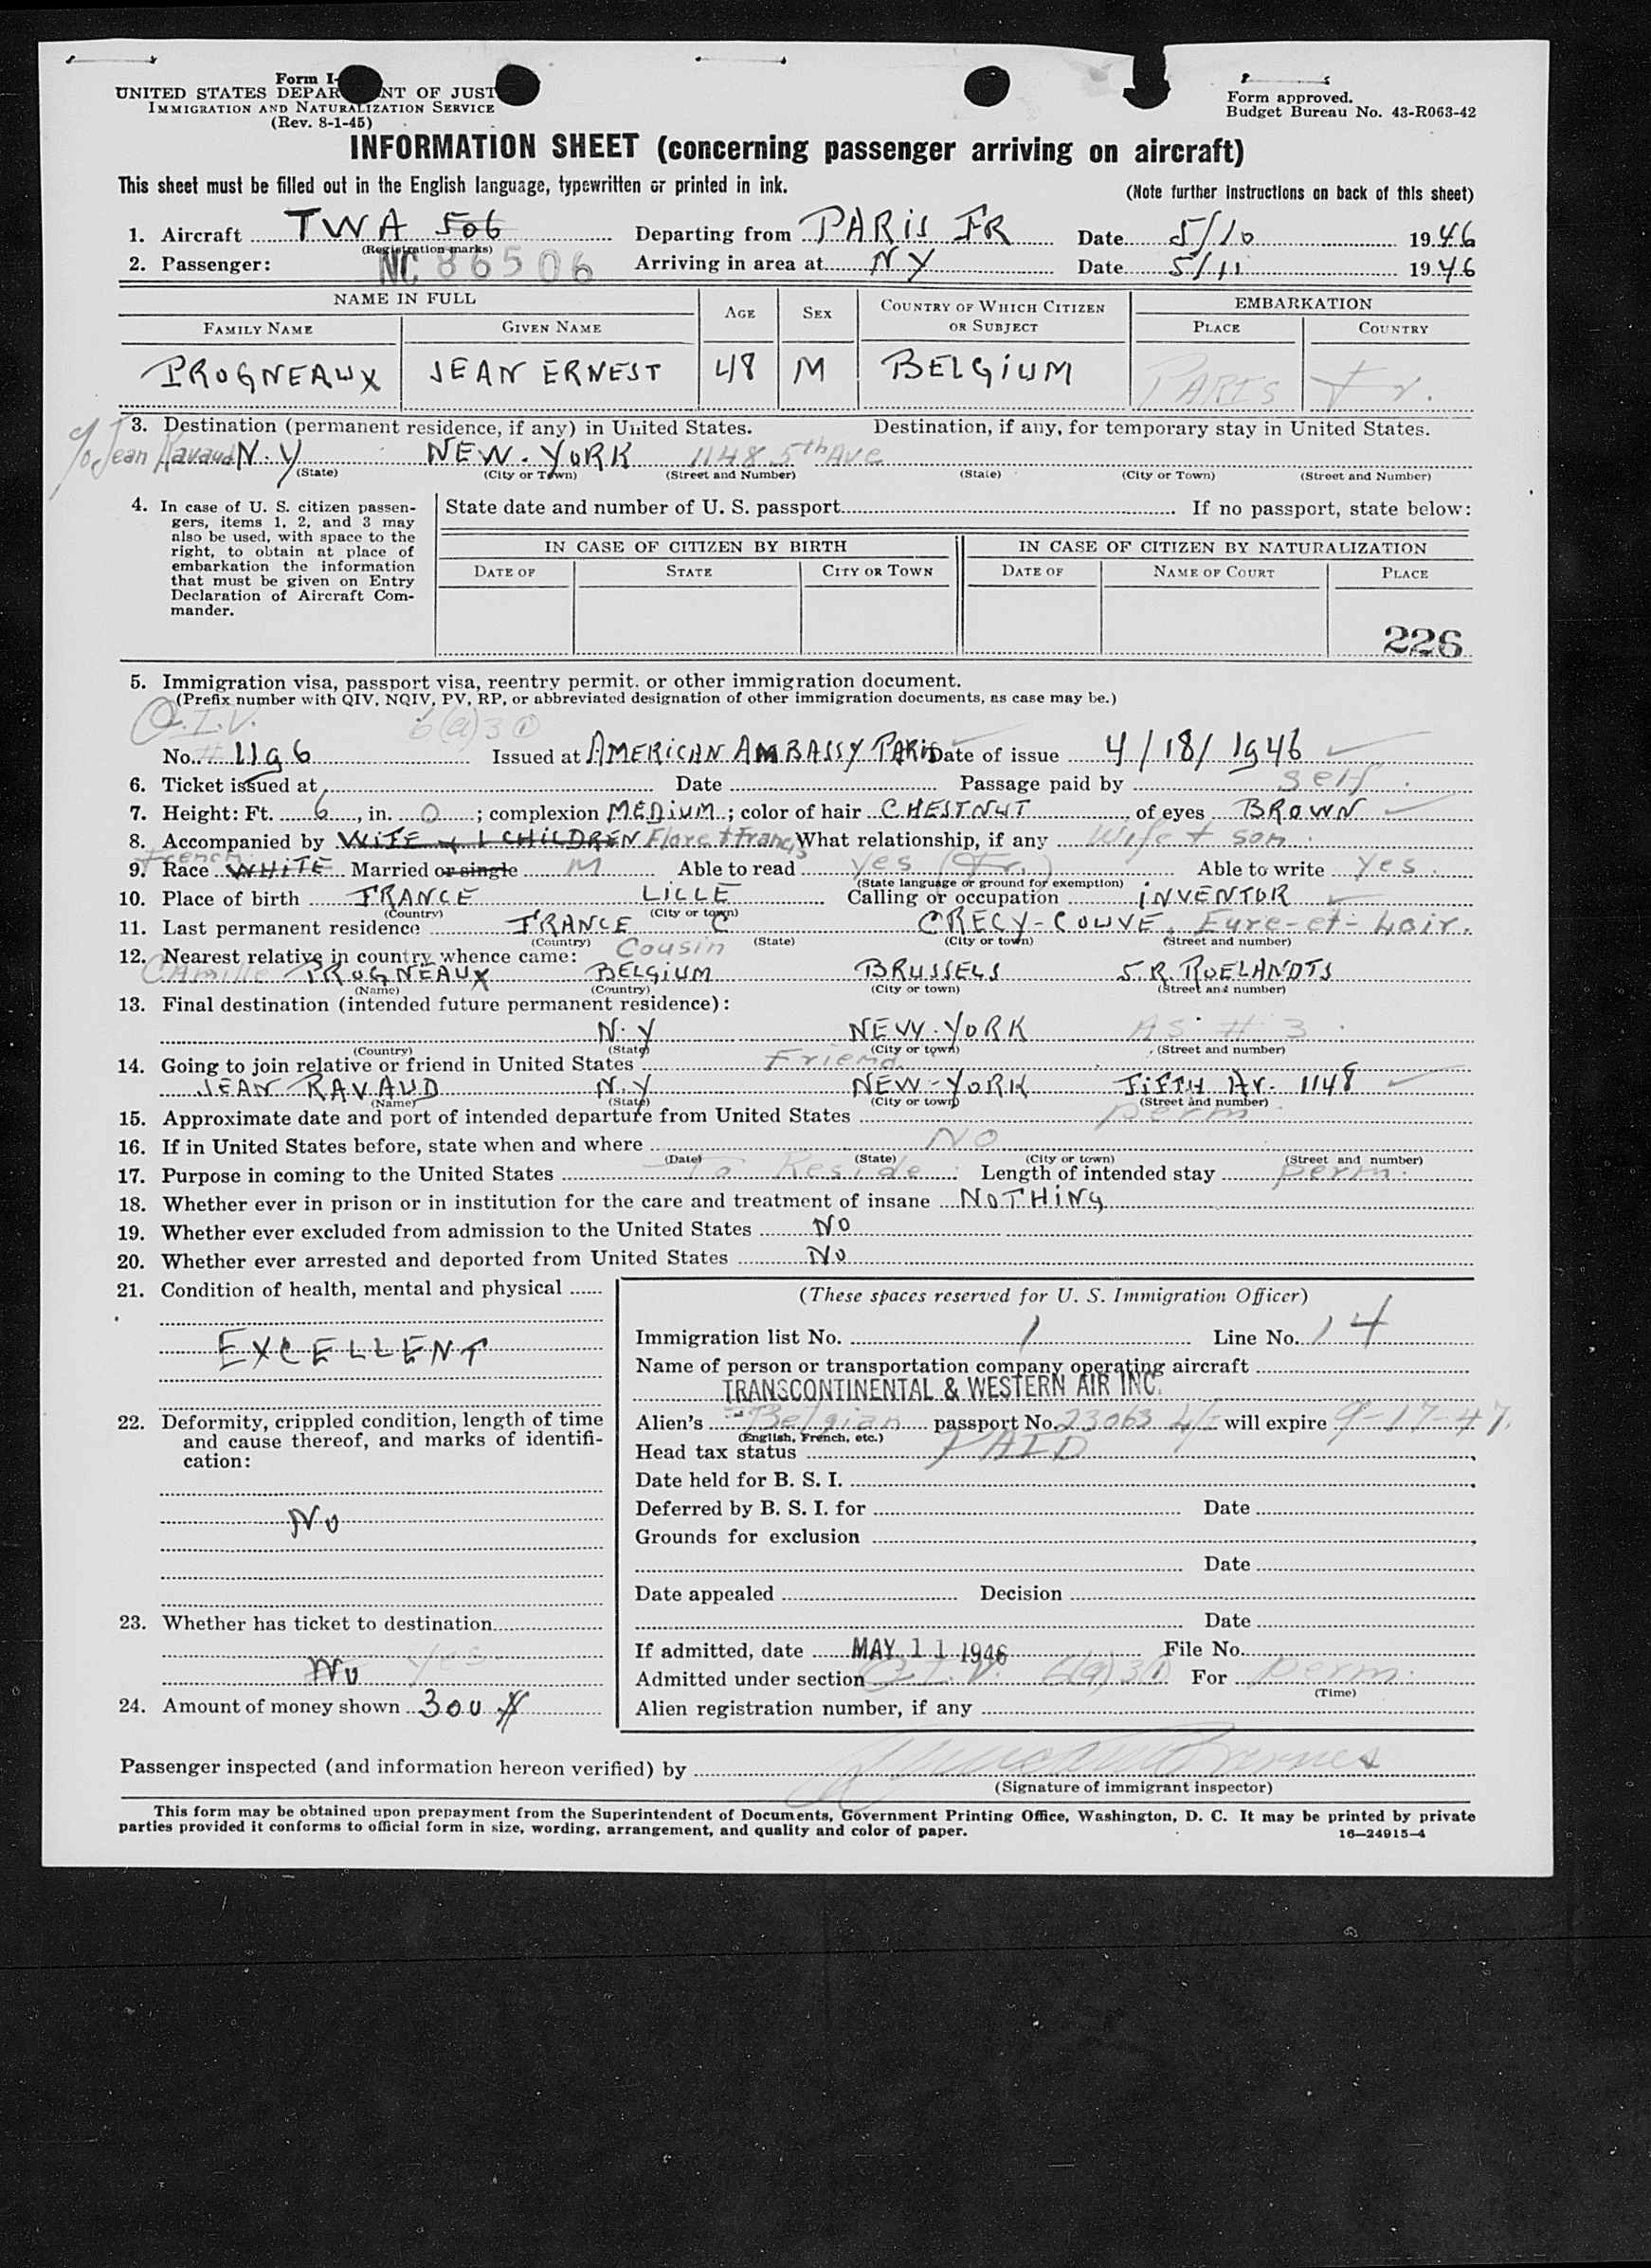 Form I-
UNITED STATES DEPAR NT OF JUST
IMMIGRATION AND NATURALIZATION SERVICE
(Rev. 8-1-45)
Form approved.
Budget Bureau No. 43-R063-42
INFORMATION SHEET (concerning passenger arriving on aircraft)
This sheet must be filled out in the English language, typewritten or printed in ink.
(Note further instructions on back of this sheet)
1. Aircraft TWA 506 Departing from PARIS FR Date 5/10 1946
(Registration marks)
2. Passenger: NC 86506 Arriving in area at NY Date 5/11 1946
NAME IN FULL AGE SEX COUNTRY OF WHICH CITIZEN OR SUBJECT EMBARKATION
FAMILY NAME GIVEN NAME PLACE COUNTRY
PROGNEAUX JEAN ERNEST 48 M BELGIUM PARIS Fr.
3. Destination (permanent residence, if any) in United States. Destination, if any, for temporary stay in United States.
c/o Jean Ravaud N.Y NEW.YORK 1148 5th Ave
(State) (City or Town) (Street and Number) (State) (City or Town) (Street and Number)
4. In case of U. S. citizen passengers, items 1, 2, and 3 may also be used, with space to the right, to obtain at place of embarkation the information that must be given on Entry Declaration of Aircraft Commander.
State date and number of U. S. passport If no passport, state below:
IN CASE OF CITIZEN BY BIRTH IN CASE OF CITIZEN BY NATURALIZATION
DATE OF STATE CITY OR TOWN DATE OF NAME OF COURT PLACE
226
5. Immigration visa, passport visa, reentry permit, or other immigration document.
(Prefix number with QIV, NQIV, PV, RP, or abbreviated designation of other immigration documents, as case may be.)
Q.I.V. 6(a)3 ①
No. # 1196 Issued at AMERICAN AMBASSY PARIS Date of issue 4/18/1946
6. Ticket issued at Date Passage paid by self
7. Height: Ft. 6, in. 0; complexion MEDIUM; color of hair CHESTNUT of eyes BROWN
8. Accompanied by WIFE + 1 CHILDREN Flore + Francis What relationship, if any Wife + son
French
9. Race WHITE Married or single M Able to read yes (Fr.) Able to write yes.
(State language or ground for exemption)
10. Place of birth FRANCE LILLE Calling or occupation INVENTOR
(Country) (City or town)
11. Last permanent residence FRANCE CRECY-COUVE, Eure-et-Loir.
(Country) (State) (City or town) (Street and number)
12. Nearest relative in country whence came: Cousin
Camille PROGNEAUX BELGIUM BRUSSELS 5.R. ROELANDTS
(Name) (Country) (City or town) (Street and number)
13. Final destination (intended future permanent residence):
N.Y NEW.YORK AS # 3
(Country) (State) (City or town) (Street and number)
14. Going to join relative or friend in United States Friend
JEAN RAVAUD N.Y NEW-YORK FIFTH AV. 1148
(Name) (State) (City or town) (Street and number)
15. Approximate date and port of intended departure from United States perm
16. If in United States before, state when and where NO
(Date) (State) (City or town) (Street and number)
17. Purpose in coming to the United States To Reside Length of intended stay perm.
18. Whether ever in prison or in institution for the care and treatment of insane NOTHING
19. Whether ever excluded from admission to the United States NO
20. Whether ever arrested and deported from United States NO
21. Condition of health, mental and physical
EXCELLENT
22. Deformity, crippled condition, length of time and cause thereof, and marks of identification:
NO
23. Whether has ticket to destination
NO yes.
24. Amount of money shown 300 $
(These spaces reserved for U. S. Immigration Officer)
Immigration list No. 1 Line No. 14
Name of person or transportation company operating aircraft
TRANSCONTINENTAL & WESTERN AIR INC.
Alien's Belgian passport No. 23063 will expire 9-17-47.
(English, French, etc.)
Head tax status PAID
Date held for B. S. I.
Deferred by B. S. I. for Date
Grounds for exclusion
Date
Date appealed Decision
Date
If admitted, date MAY 11 1946 File No.
Admitted under section Q.I.V. 6(a)3① For perm.
(Time)
Alien registration number, if any
Passenger inspected (and information hereon verified) by
(Signature of immigrant inspector)
This form may be obtained upon prepayment from the Superintendent of Documents, Government Printing Office, Washington, D. C. It may be printed by private
parties provided it conforms to official form in size, wording, arrangement, and quality and color of paper.
16—24915-4